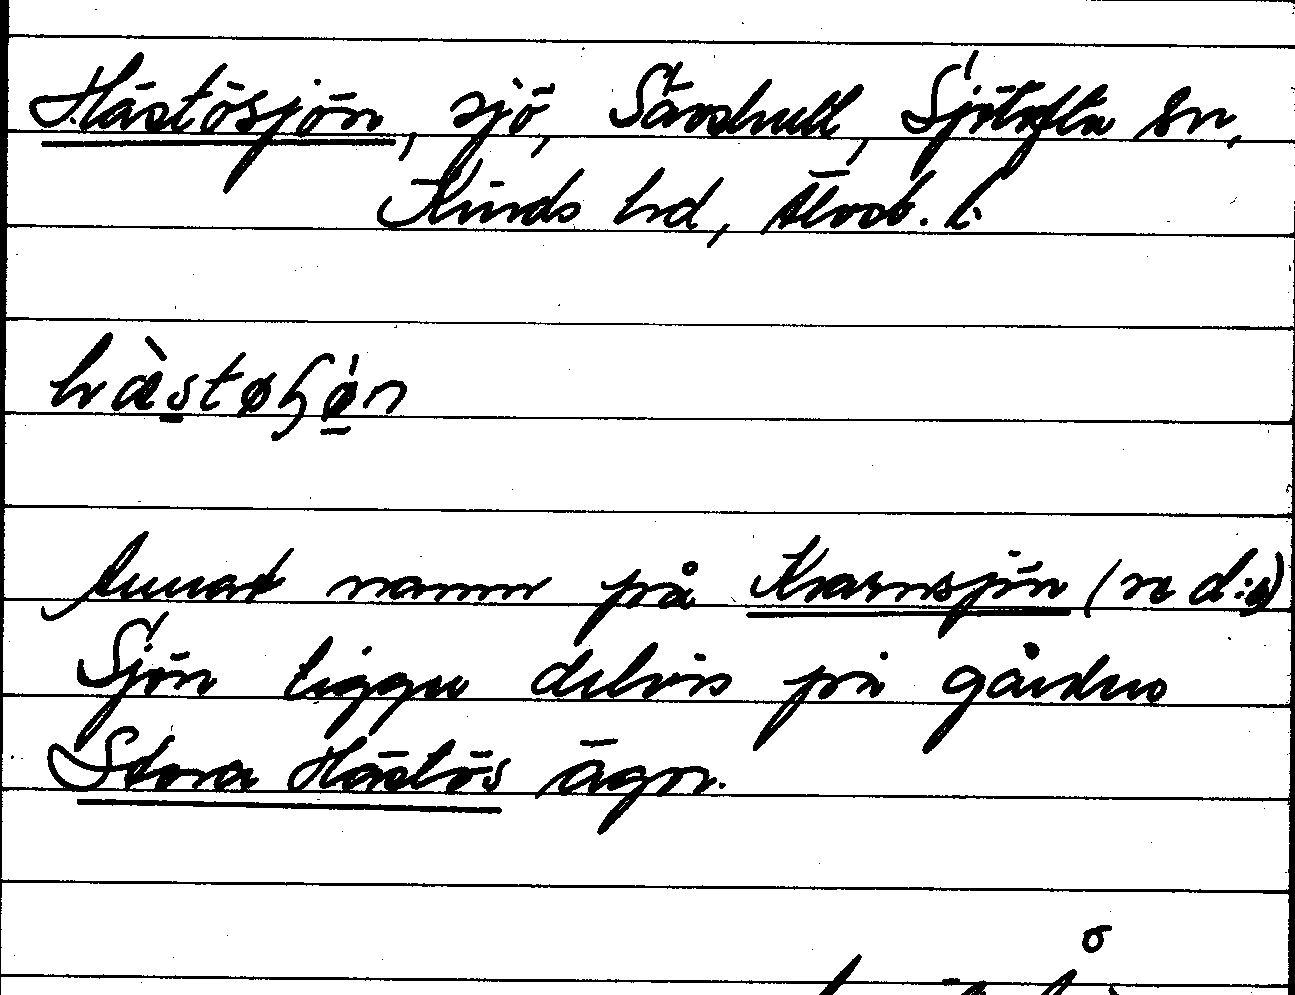 Hästösjön, sjö, Sävshult, Sjötofta sn,
Kinds hd, Älvsb. l.
hæ̀støɧø̀n
Annat namn på Kvarnsjön (se d:o)
Sjön ligger delvis på gårdens
Stora Hästös ägor.